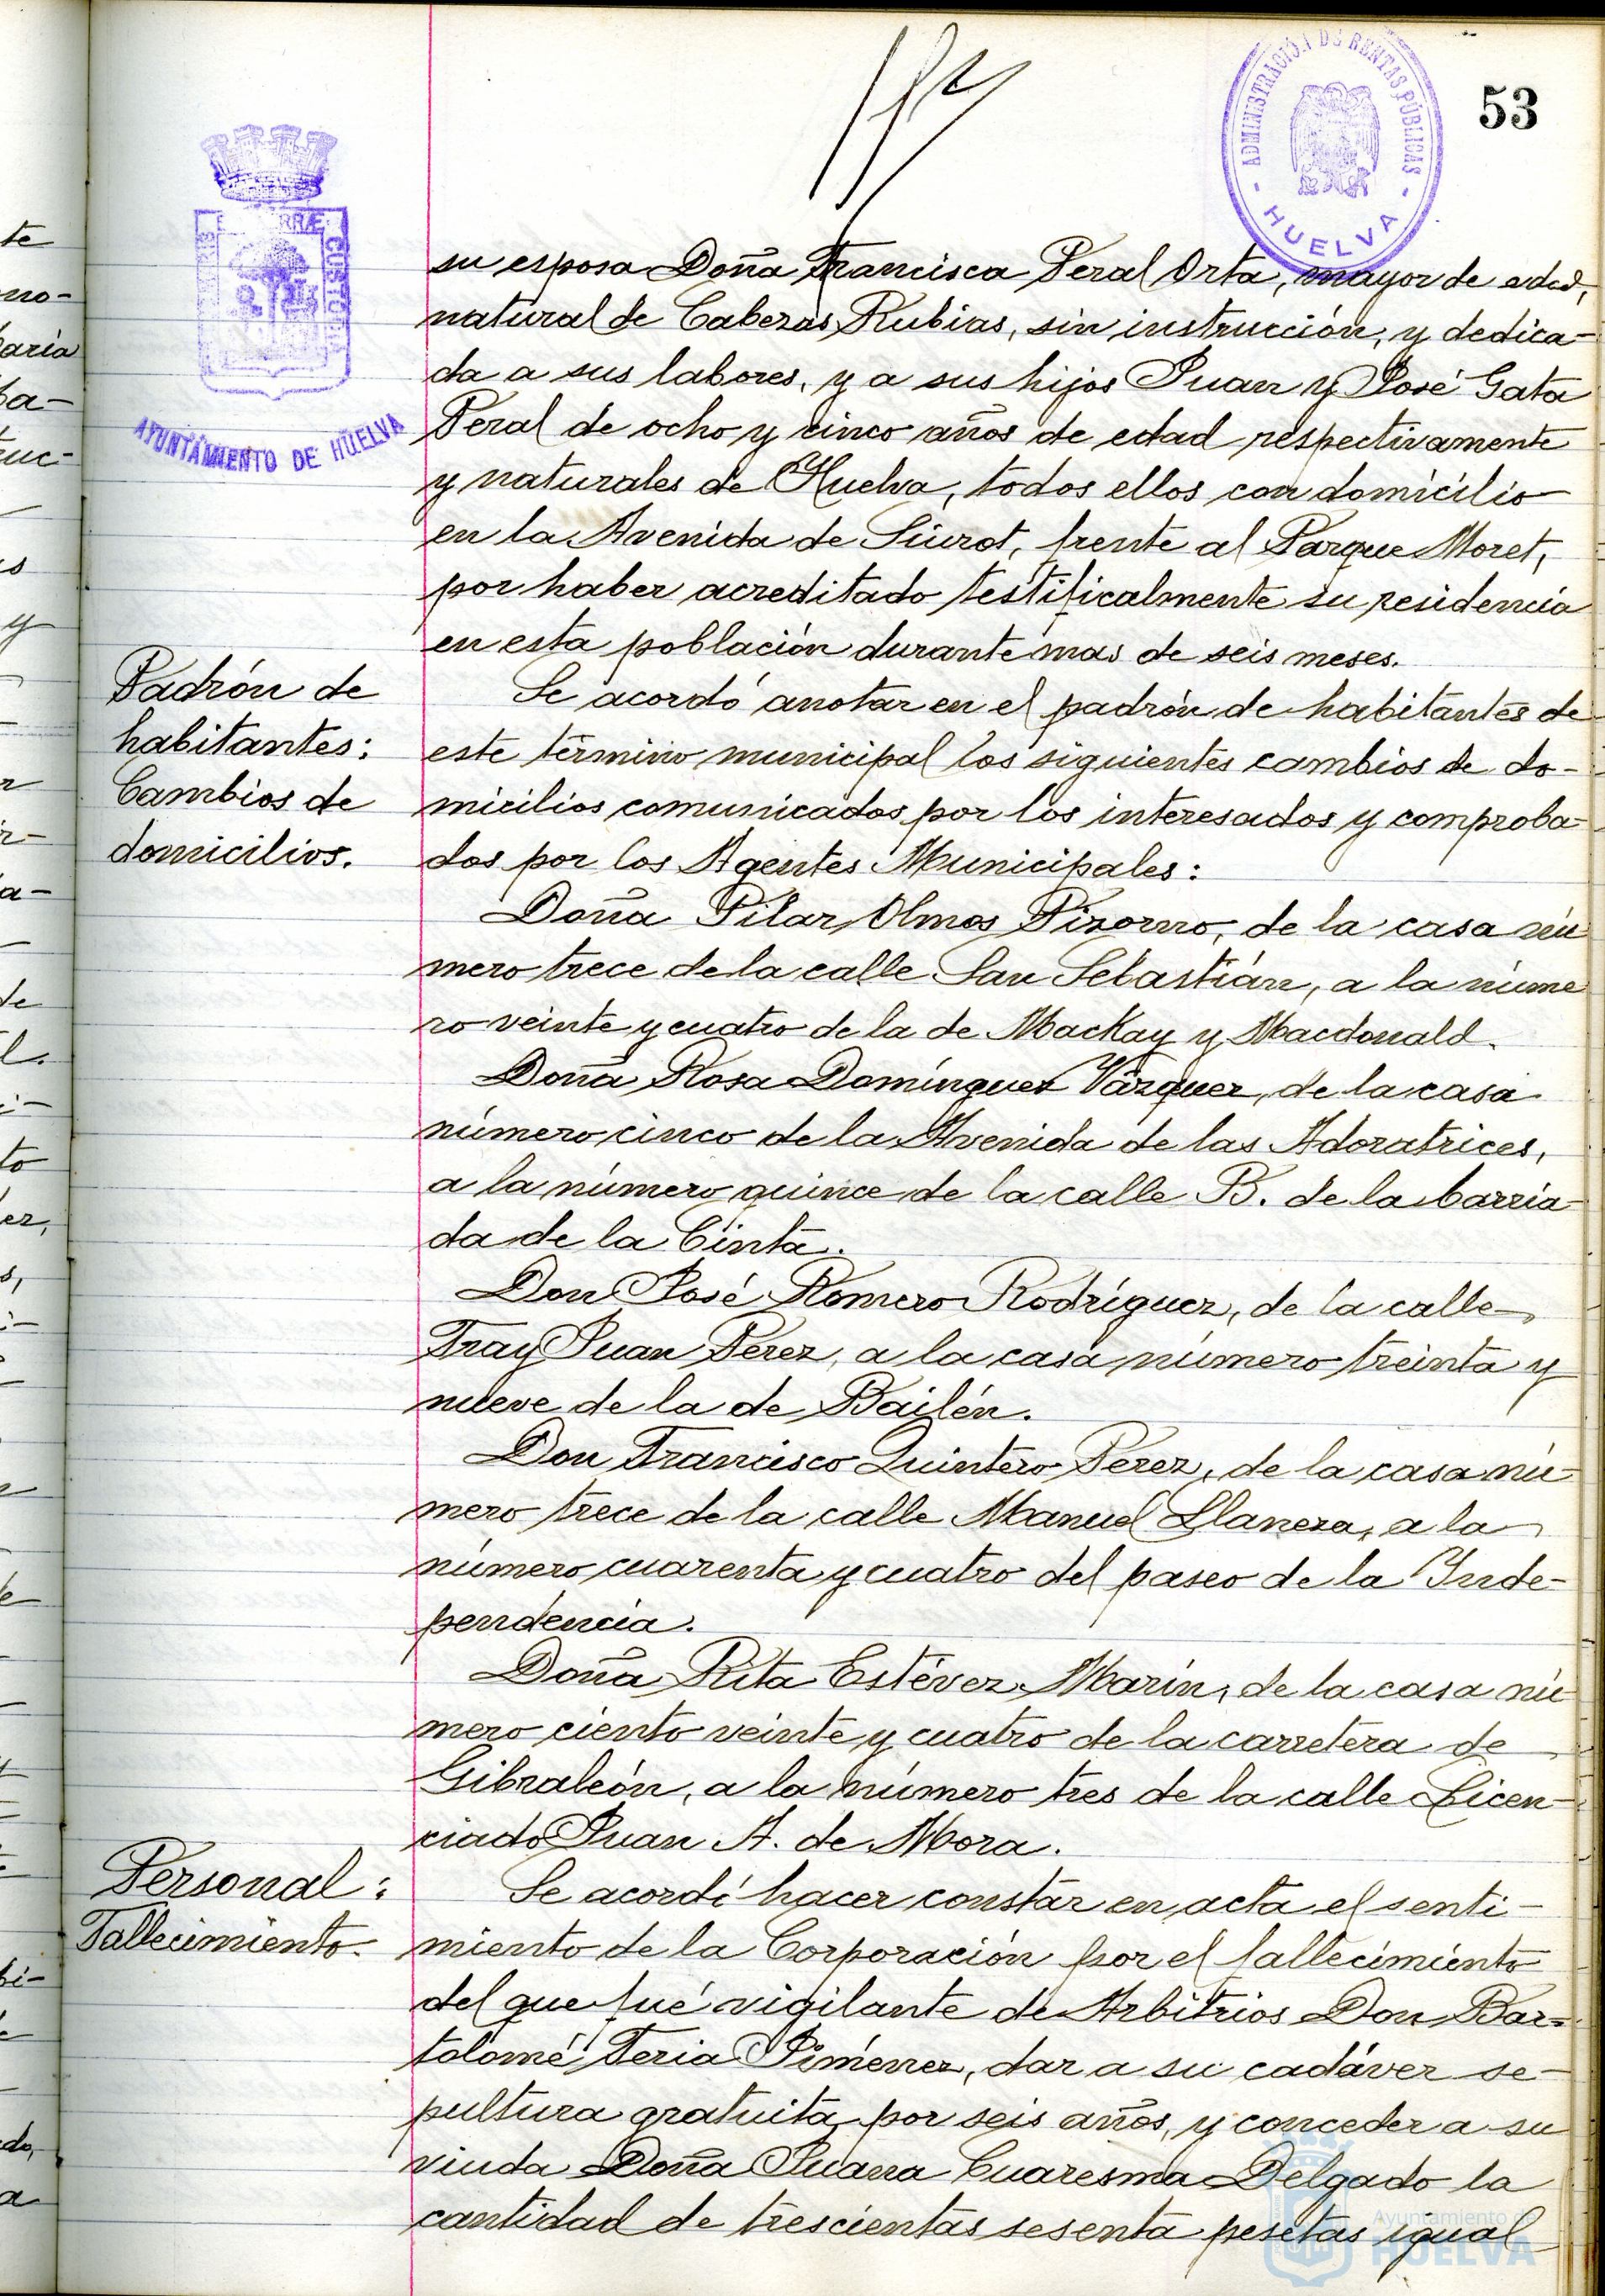 53
ADMINISTRACIÓN DE RENTAS PÚBLICAS
HUELVA
CUSTODIA
AYUNTAMIENTO DE HUELVA
su esposa Doña Francisca Peral Orta, mayor de edad,
natural de Cabezas Rubias, sin instrucción, y dedica-
da a sus labores, y a sus hijos Juan y José Gata
Peral de ocho y cinco años de edad respectivamente
y naturales de Huelva, todos ellos con domicilio
en la Avenida de Siurot, frente al Parque Moret,
por haber acreditado testificalmente su residencia
en esta población durante mas de seis meses.
Padrón de
habitantes:
Cambios de
domicilios.
Se acordó anotar en el padrón de habitantes de
este término municipal los siguientes cambios de do-
micilios comunicados por los interesados y comproba-
dos por los Agentes Municipales:
Doña Pilar Olmos Pizorno, de la casa nú
mero trece de la calle San Sebastián, a la núme
ro veinte y cuatro de la de Mackay y Macdonald.
Doña Rosa Domínguez Vázquez, de la casa
número cinco de la Avenida de las Adoratrices,
a la número quince de la calle B. de la barria
da de la Cinta.
Don José Romero Rodríguez, de la calle
Fray Juan Pérez, a la casa número treinta y
nueve de la de Bailén.
Don Francisco Quintero Pérez, de la casa nú-
mero trece de la calle Manuel Llaneza, a la
número cuarenta y cuatro del paseo de la Inde-
pendencia.
Doña Rita Estévez Marín, de la casa nú
mero ciento veinte y cuatro de la carretera de
Gibraleón, a la número tres de la calle Licen-
ciado Juan A. de Mora.
Personal:
Fallecimiento.
Se acordó hacer constar en acta el senti-
miento de la Corporación por el fallecimiento
del que fué vigilante de Arbitrios Don Bar-
tolomé Feria Jiménez, dar a su cadáver se-
pultura gratuita por seis años, y conceder a su
viuda Doña Juana Cuaresma Delgado la
cantidad de trescientas sesenta pesetas igual
Ayuntamiento de
HUELVA